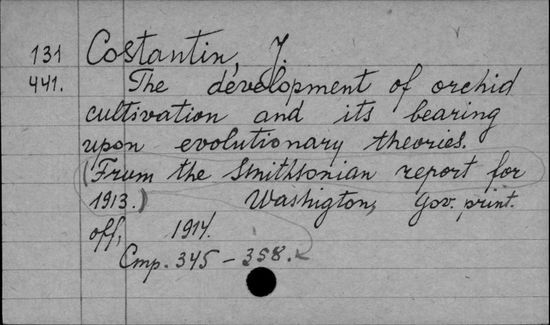 131 Costantin, J.
441. The development of orchid
cultivation and its bearing
upon evolutionary theories.
(From the Smithsonian report for
1913.) Washigton, Gov. print.
off, 1914.
Стр. 345 - 358.